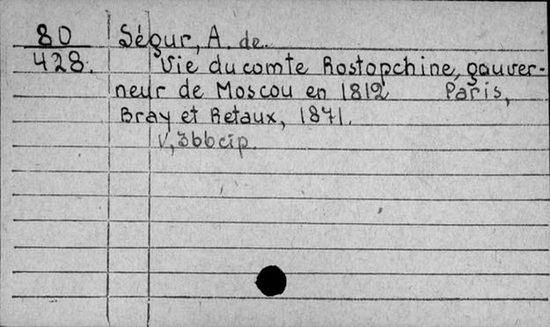 80 Ségur, A. de.
428. Vie du comte Rostopchine, gouver-
neur de Moscou en 1812 Paris,
Bray et Retaux, 1871.
V, 366 cip.